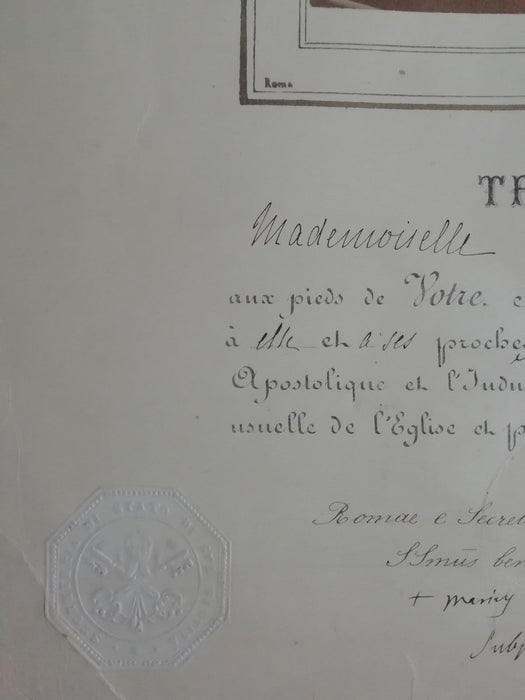 Roma
Mademoiselle
aux pieds de Votre
à elle et à ses proches
Apostolique et l'Indu
usuelle de l'Eglise et p
Romae e Secret
SSmūs ben